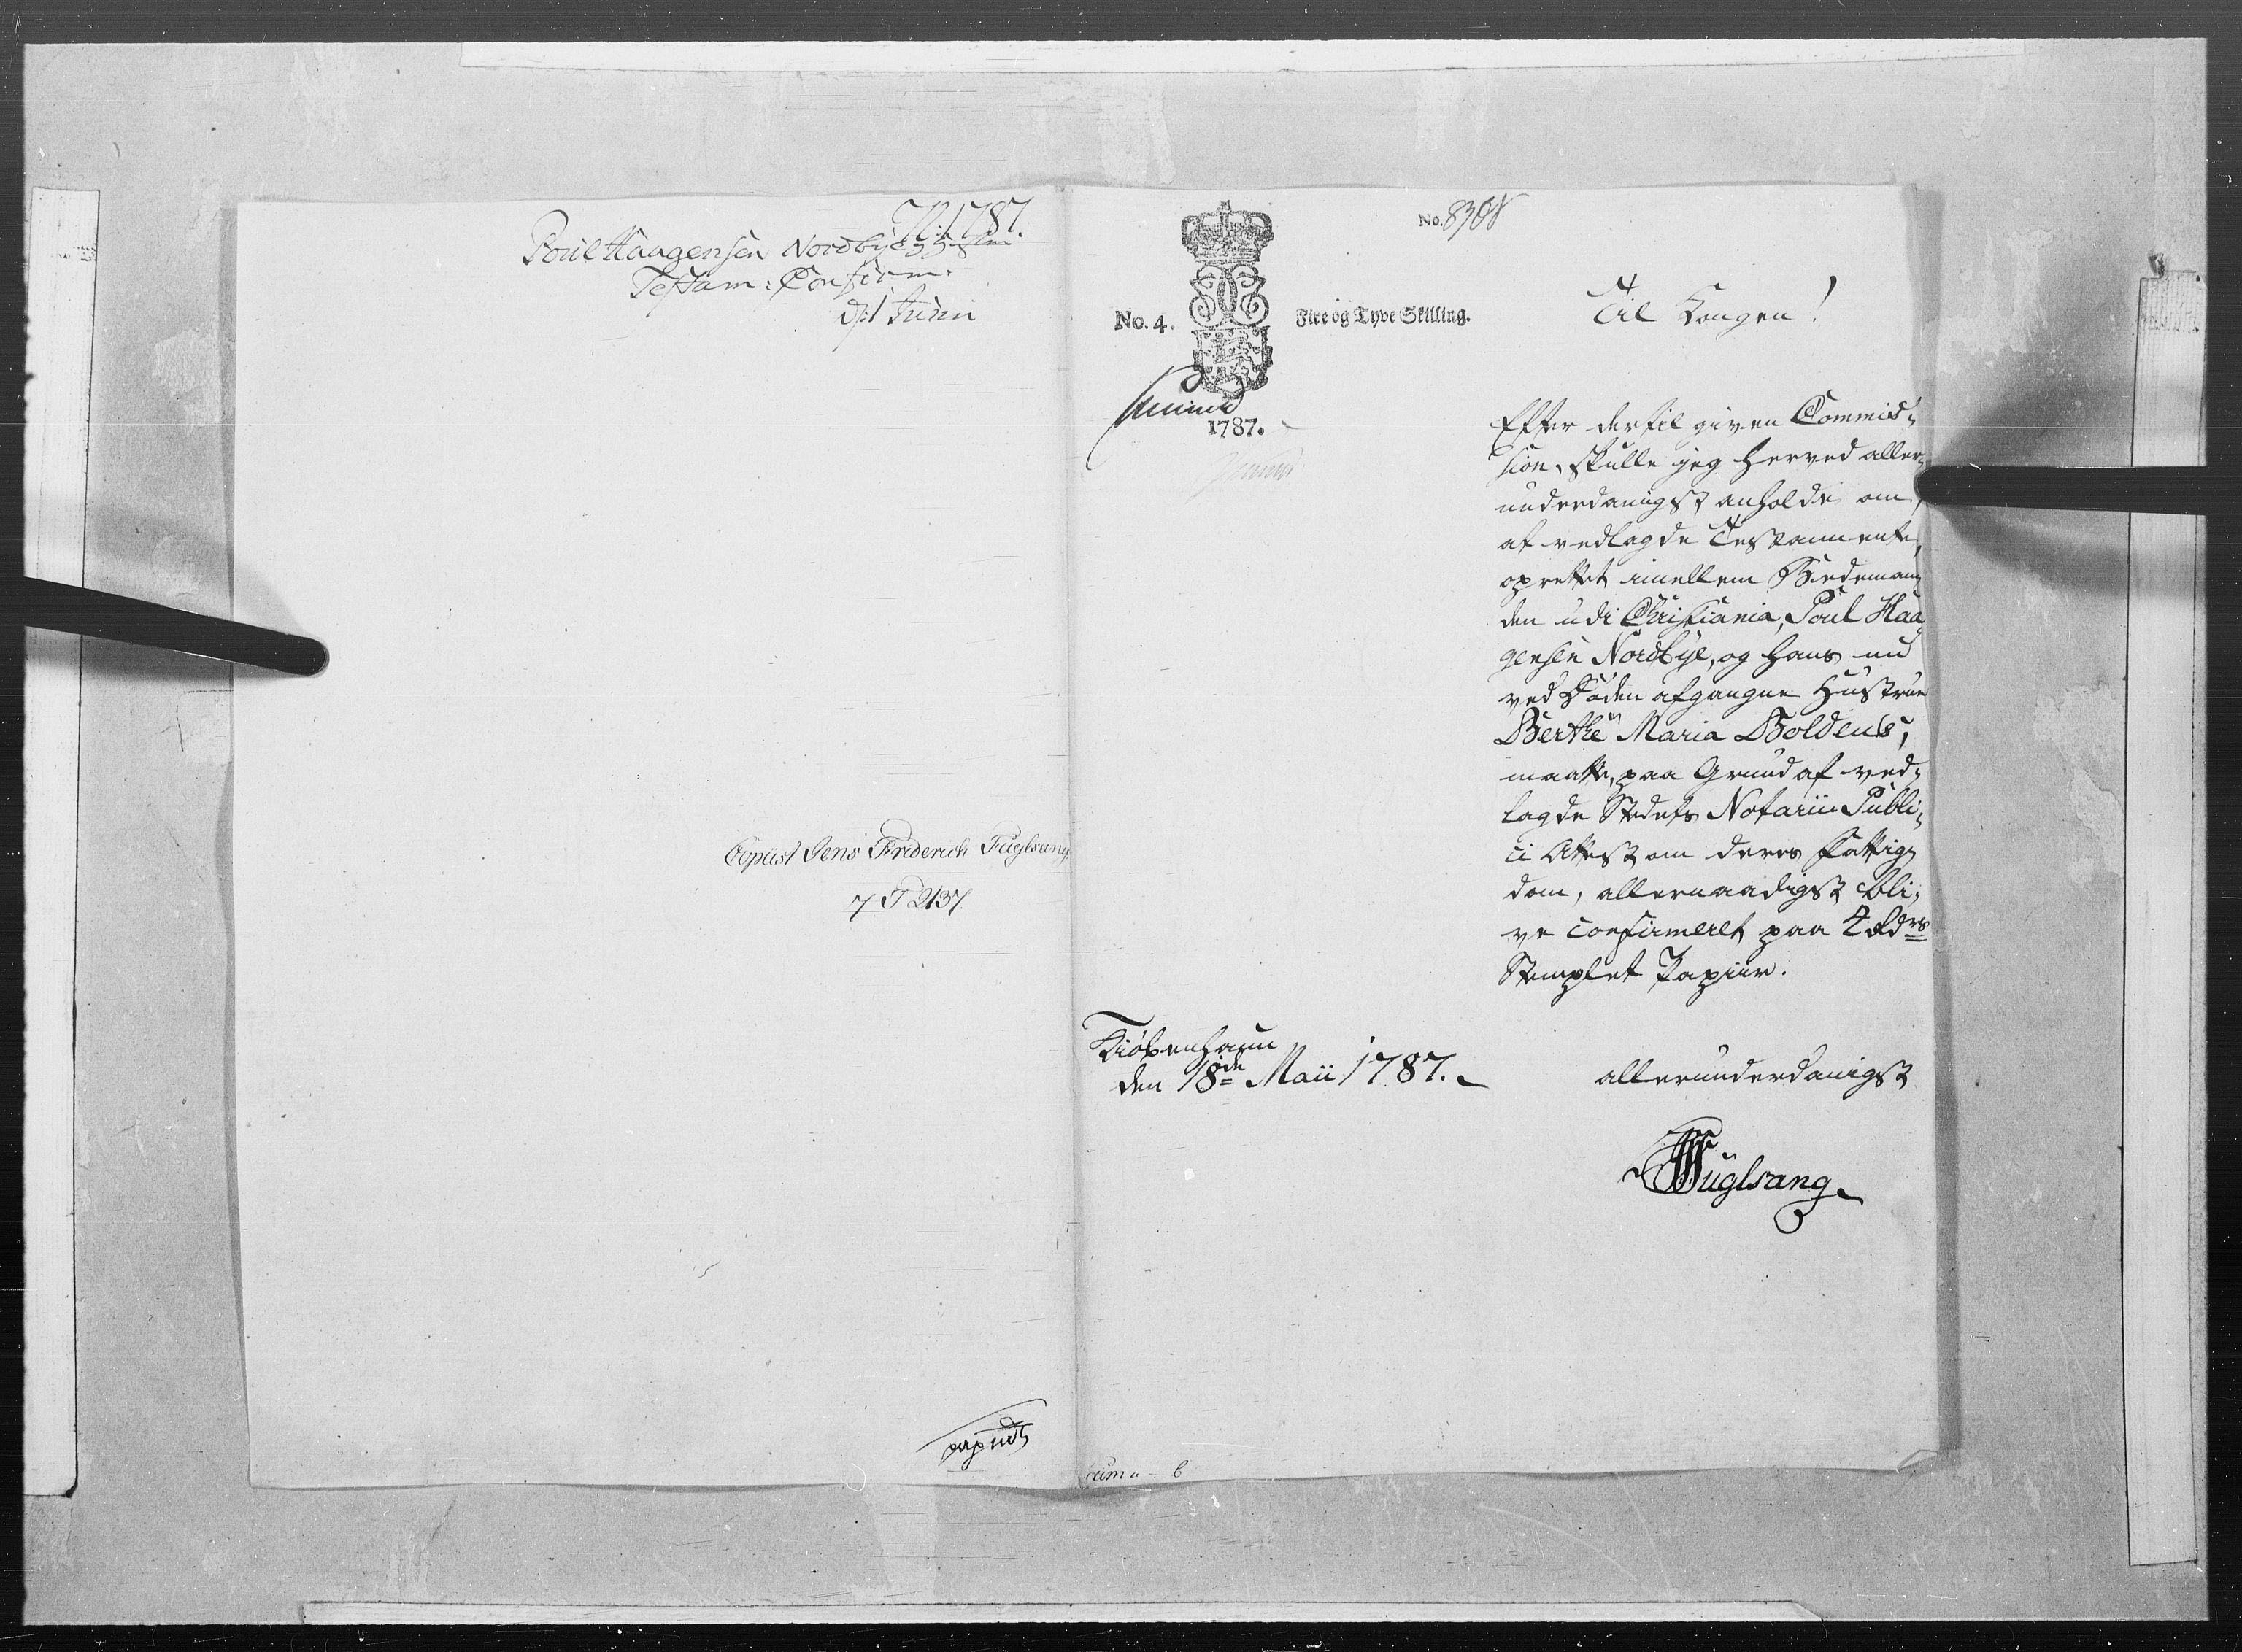 1787.
Poul Haagensen Nordbye
Testam: Confirm:
d. 1 Junii
Copiist Jens Friderich Fuglsang
7 T 2137
No. 8308
No. 4. Fire og Tyve Skilling.
1787.
Til Kongen!
Efter dertil given Commis-
sion, skulle jeg herved aller-
underdanigst anholde om,
at vedlagde Testamente,
oprettet imellem Biedeman-
den udi Christiania, Poul Haa-
gensen Nordbye, og hans nu
ved Døden afgangne Hustrue
Berthe Maria Boldens,
maatte, paa Grund af ved-
lagde Stedets Notarii Publi-
ci Attest om deres Fattig-
dom, allernaadigst bli-
ve confirmeret paa 4 Rdrs
Stemplet Papiir.
Kiøbenhavn
den 18de Maii 1787.
allerunderdanigst
Fuglsang